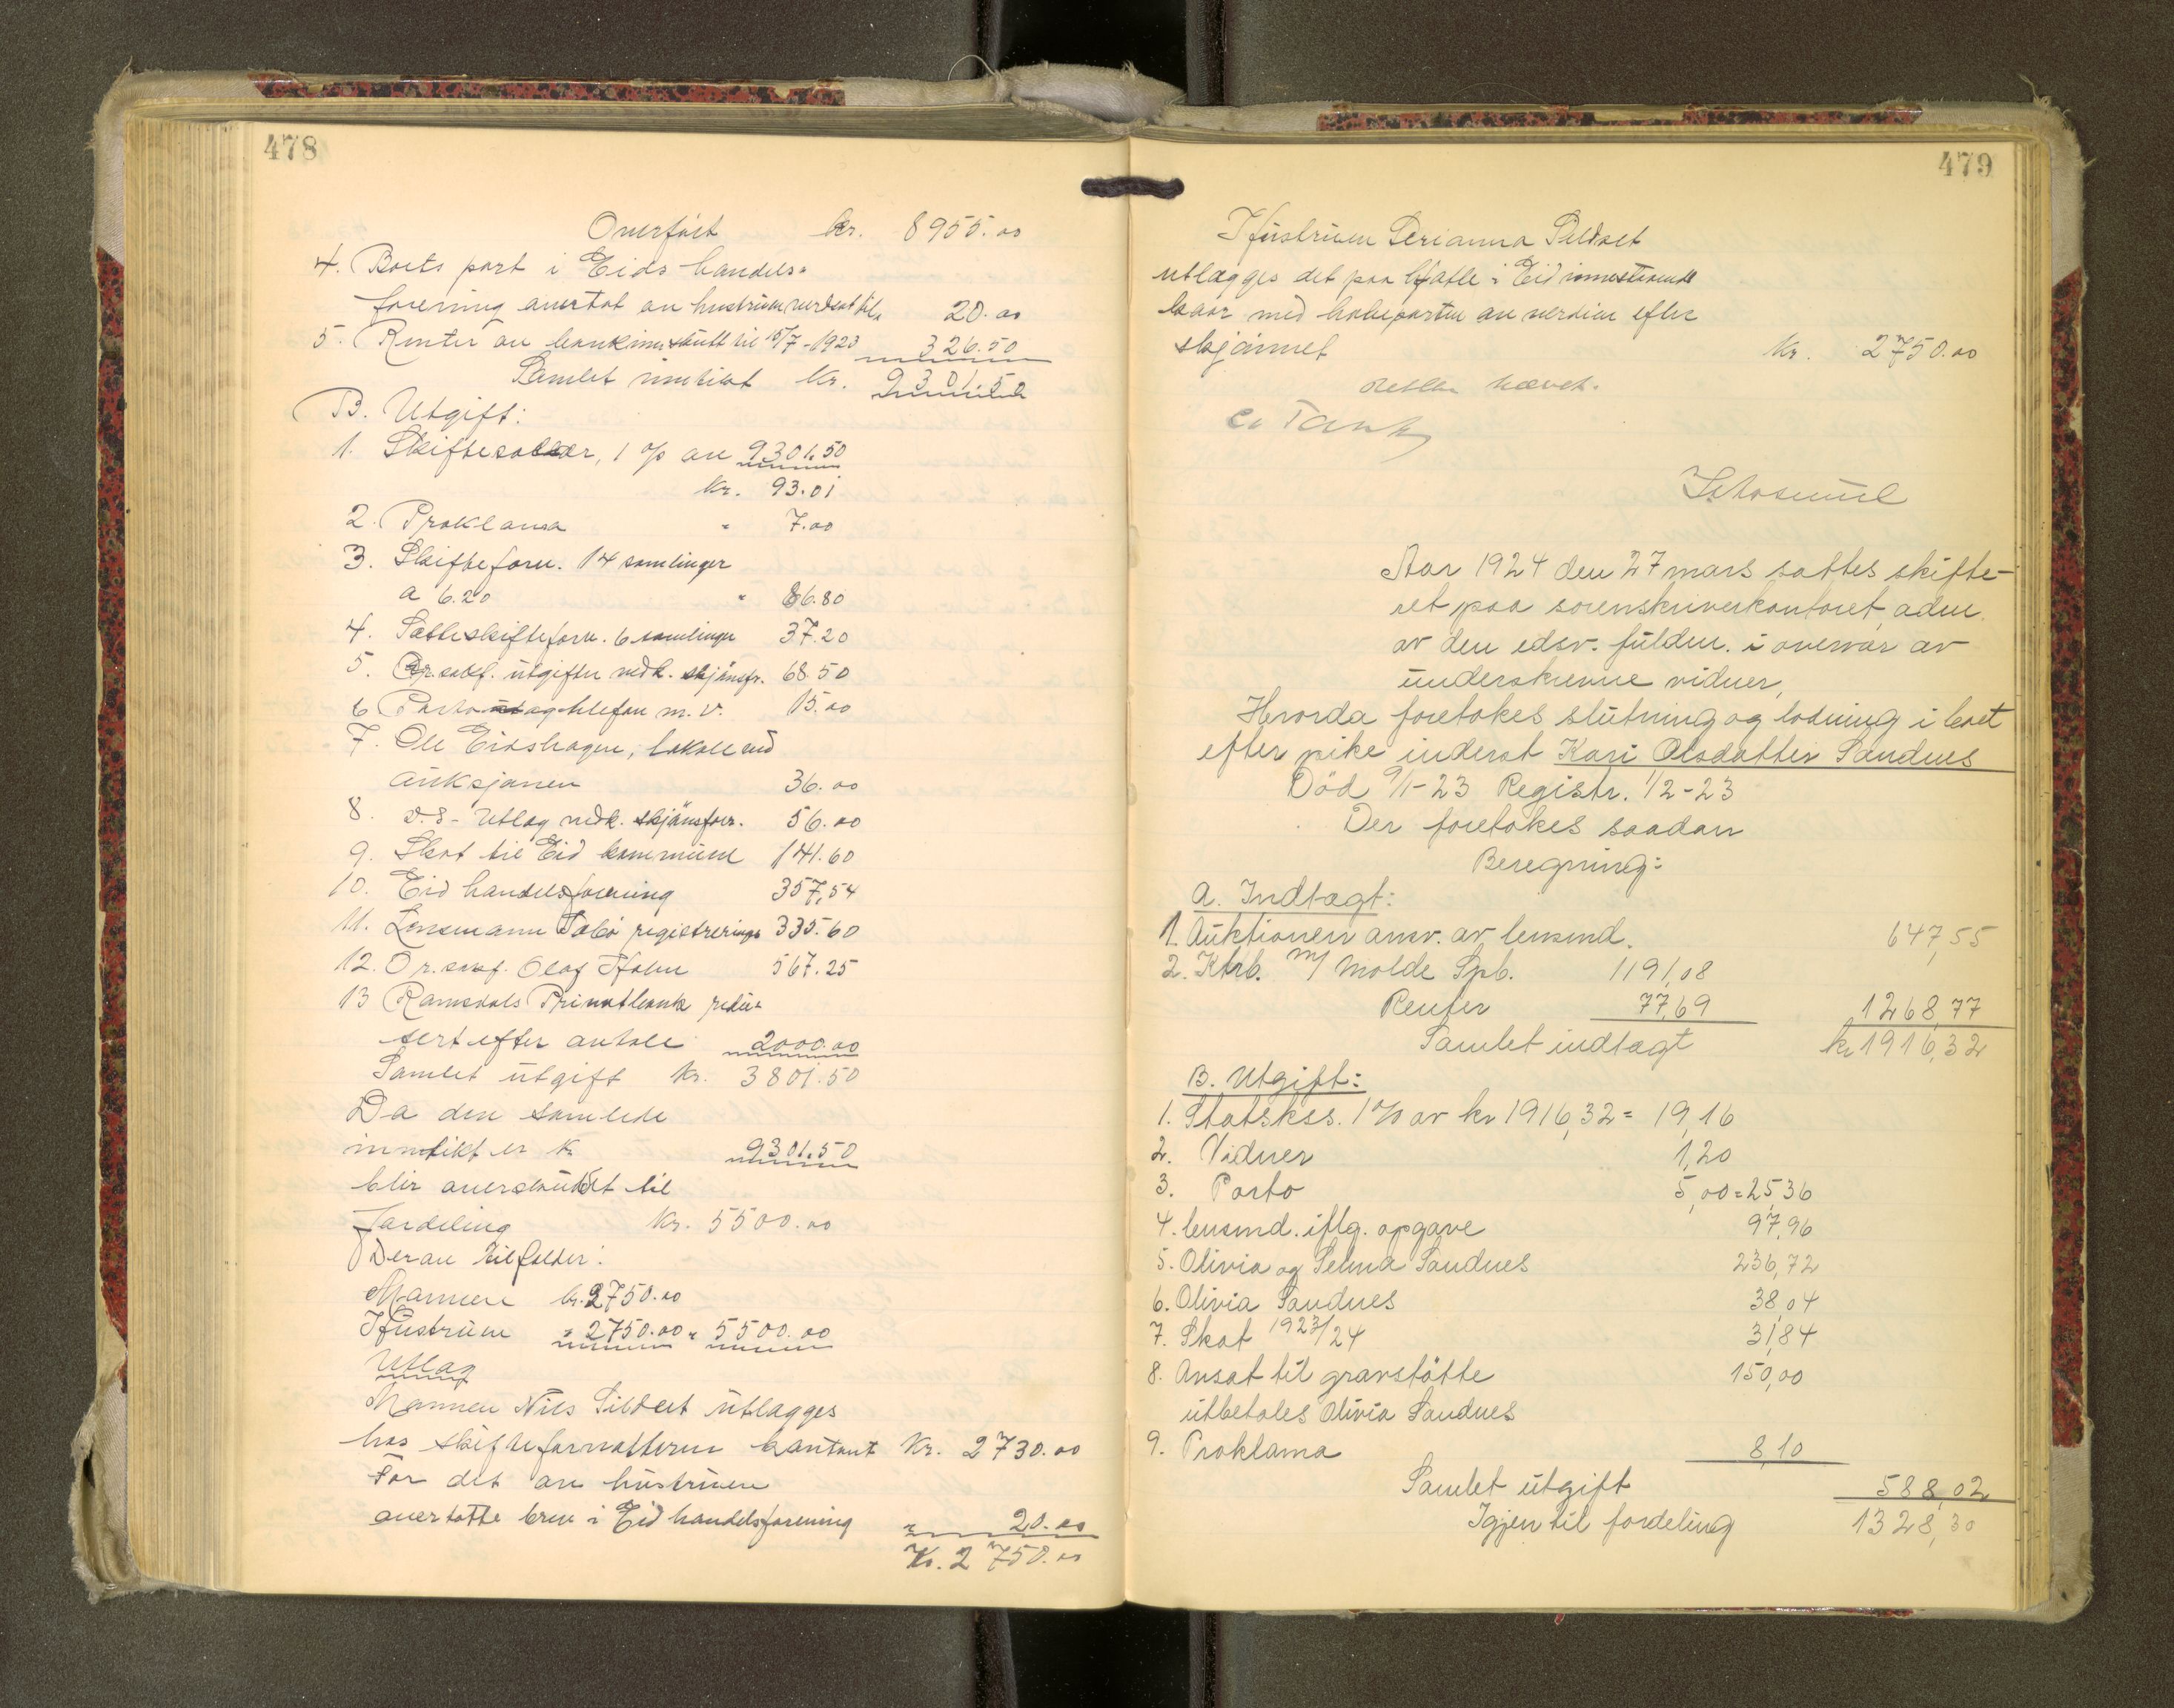 478
Overført kr. 8955.00
4. Boets part i Eids handels-
forening overtat av hustruen verdsat til " 20.00
5. Renter av bankinnskutt til 15/7-1923 326.50
Samlet inntekt kr. 9301.50
B. Utgift:
1. Skiftesalær, 1 % av 9301.50
kr. 93.01
2. Proklama " 7.00
3. Skifteforv. 14 samlinger
a 6.20 " 86.80
4. Sætteskifteforv. 6 samlinger 37.20
5. O.r.sakf. utgifter vedk. skjønsfor. 68.50
6 Porto telefon m.v. 15.00
7. Ole Eidshagen, lokale ved
auksjonen 36.00
8. d.s - Utlag vedk. skjønsforr. 56.00
9. Skat til Eid kommune 141.60
10. Eid handelsforening 357,54
11. Lensmann registrering 335.60
12. O.r.sakf. Olaf Holm 567.25
13 Ramsdals Privatbank redu-
sert efter avtale 2000.00
Samlet utgift kr. 3801.50
Da den samlede
inntekt er kr 9301.50
blir overskuddet til
fordeling kr. 5500.00
Derav tilfalder:
Mannen kr. 2750.00
Hustruen " 2750.00 " 5500.00
Utlag
Mannen Nils Sildset utlægges
hos skifteforvalteren kontant kr. 2730.00
For det av hustruen
overtatte brev i Eid handelsforening " 20.00
Kr. 2750.00
479
Hustruen Serianna Sildset
utlægges det paa Hatle i Eid innestaaende
kaar med halveparten av verdien efter
skjønnet kr. 2750.00
Retten hævet.
C. Tank
Aar 1924 den 27 mars sattes skifte-
ret paa sorenskriverkontoret, adm.
av den edsv. fuldm. i overvær av
underskrevne vidner,
Hvorda foretokes slutning og lodning i boet
efter pike inderst Kari Olsdatter Sandnes
Död 9/1-23 Registr. 1/2-23
Der foretokes saadan
Beregning:
A. Indtægt:
1. Auktionen ansv. av lensmd. 647,55
2. Ktrb. m/ Molde Spb. 1191,08
Renter 77,69 1268,77
Samlet indtægt kr 1916,32
B. Utgift:
1. Statskss. 1 % av kr 1916,32 = 19,16
2. Vidner 1,20
3. Porto 5,00 = 25,36
4. lensmd. iflg. opgave 97,96
5. Olivia og Selma Sandnes 236,72
6. Olivia Sandnes 38,04
7. Skat 1923/24 31,84
8. Ansat til gravstötte 150,00
utbetales Olivia Sandnes
9. Proklama 8,10
Samlet utgift 588,02
Igjen til fordeling 1328,30